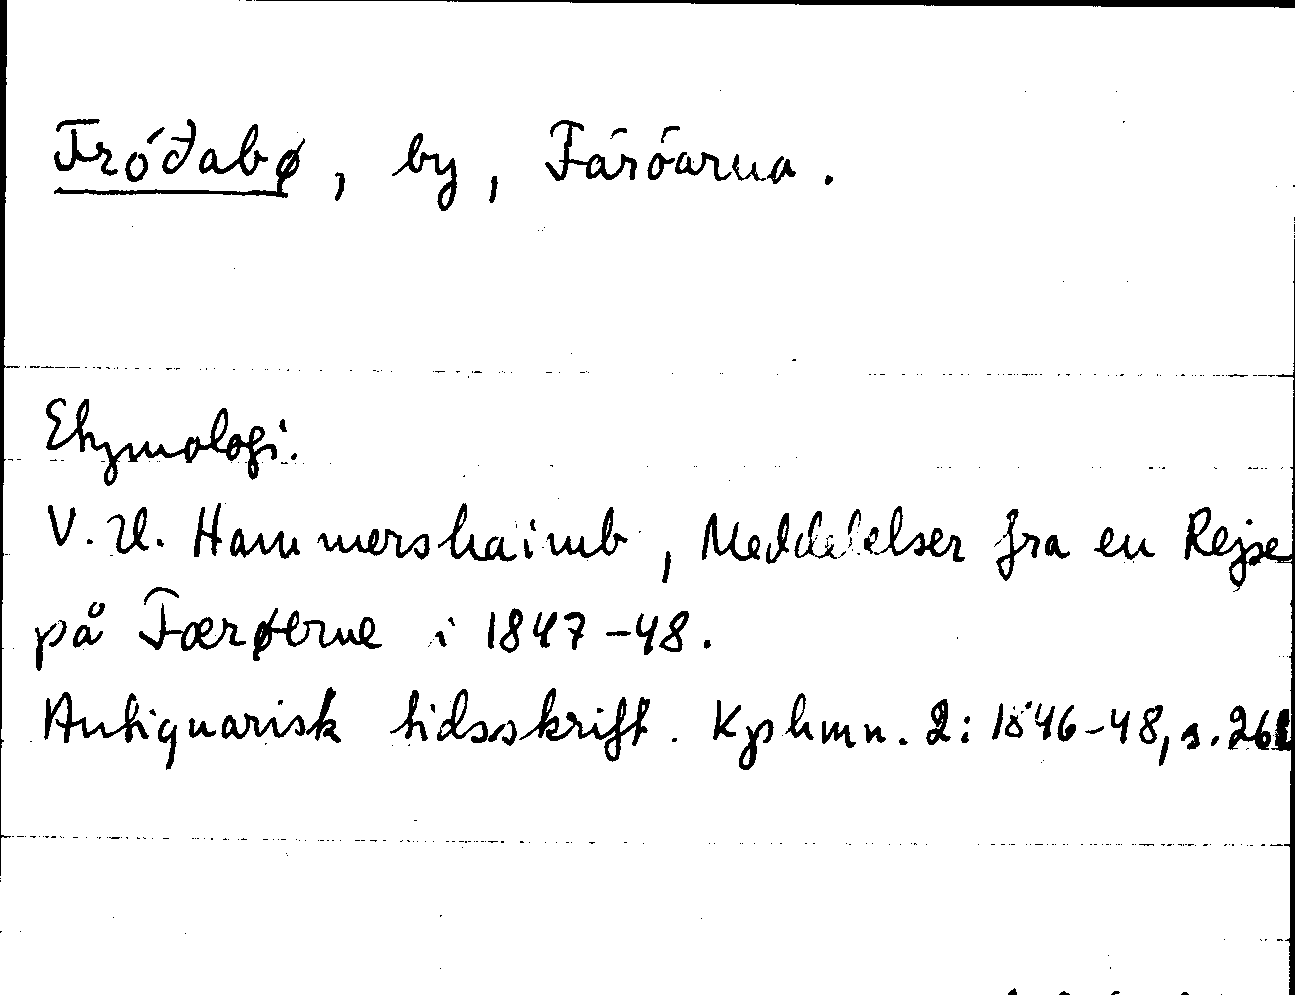 Fróðabø, by, Färöarna.
Etymologi.
V. U. Hammershaimb, Meddelelser fra en Rejse
på Færøerne i 1847-48.
Antiquarisk tidsskrift. Kphmn. 2: 1846-48, s.